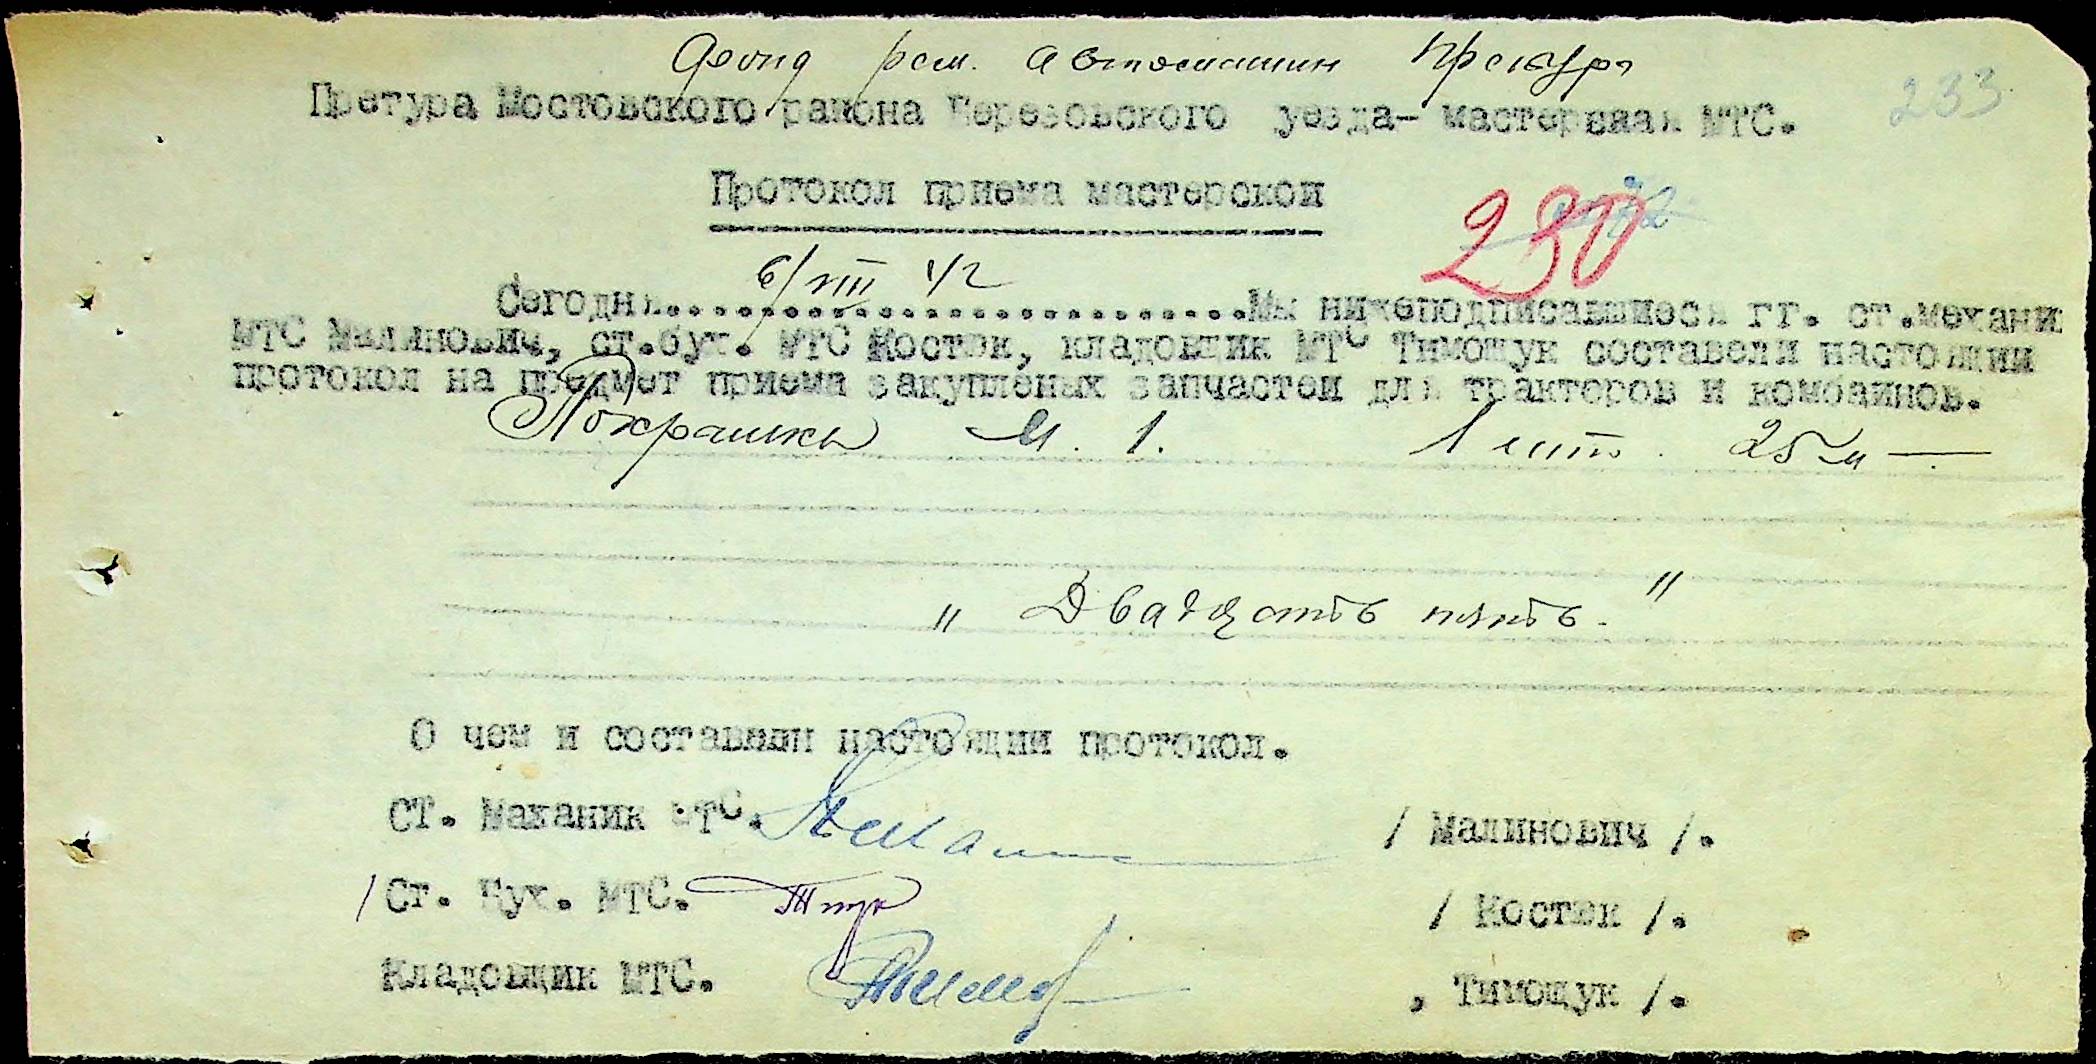 Фонд рем. автомашин Претуры
233
Претура Мостовского района Березовского уезда- мастерская МТС.
Протокол приема мастерской
230
6/VIII 42
Сегодня..............................Мы нижеподписавшиеся гг. ст.механи
МТС Малинович, ст.бух. МТС Костюк, кладовщик МТС Тимощук составели настоящий
протокол на предмет приема закупленых запчастей для тракторов и комбаинов.
Покрашки М. 1. 1 шт. 25 м —
" Двадцать пять. "
О чем и составели настоящии протокол.
СТ. Механик МТС. / Малинович /.
/ Ст. Бух. МТС. / Костюк /.
Кладовщик МТС. , Тимощук /.